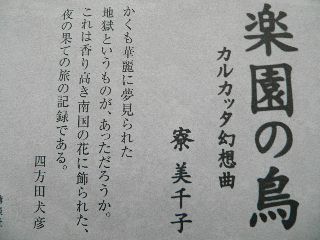 楽園の鳥
カルカッタ幻想曲
寮 美千子
かくも華麗に夢見られた
地獄というものが、あっただろうか。
これは香り高き南国の花に飾られた、
夜の果ての旅の記録である。
四方田犬彦